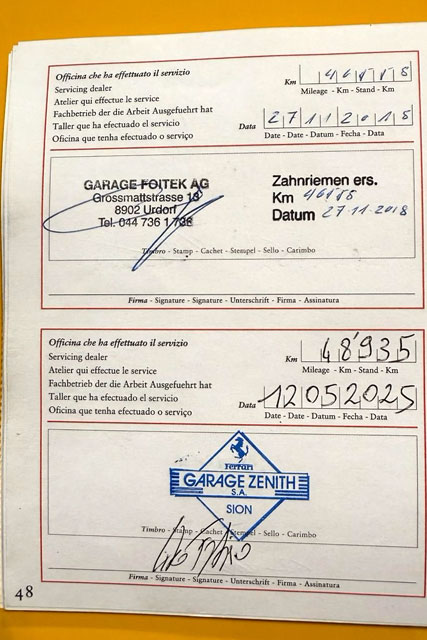 Officina che ha effettuato il servizio
Servicing dealer
Atelier qui effectue le service
Fachbetrieb der die Arbeit Ausgefuehrt hat
Taller que ha efectuado el servicio
Oficina que tenha efectuado o serviço
Km
Mileage - Km - Stand - Km
Data 27112018
Date - Date - Datum - Fecha - Data
GARAGE FOITEK AG
Grossmattstrasse 13
8902 Urdorf
Tel. 044 736 1 736
Zahnriemen ers.
Km
Datum 27.11.2018
Timbro - Stamp - Cachet - Stempel - Sello - Carimbo
Firma - Signature - Signature - Unterschrift - Firma - Assinatura
Officina che ha effettuato il servizio
Servicing dealer
Atelier qui effectue le service
Fachbetrieb der die Arbeit Ausgefuehrt hat
Taller que ha efectuado el servicio
Oficina que tenha efectuado o serviço
Km 48'935
Mileage - Km - Stand - Km
Data 12052025
Date - Date - Datum - Fecha - Data
Ferrari
GARAGE ZENITH
S.A.
SION
Timbro - Stamp - Cachet - Stempel - Sello - Carimbo
Firma - Signature - Signature - Unterschrift - Firma - Assinatura
48